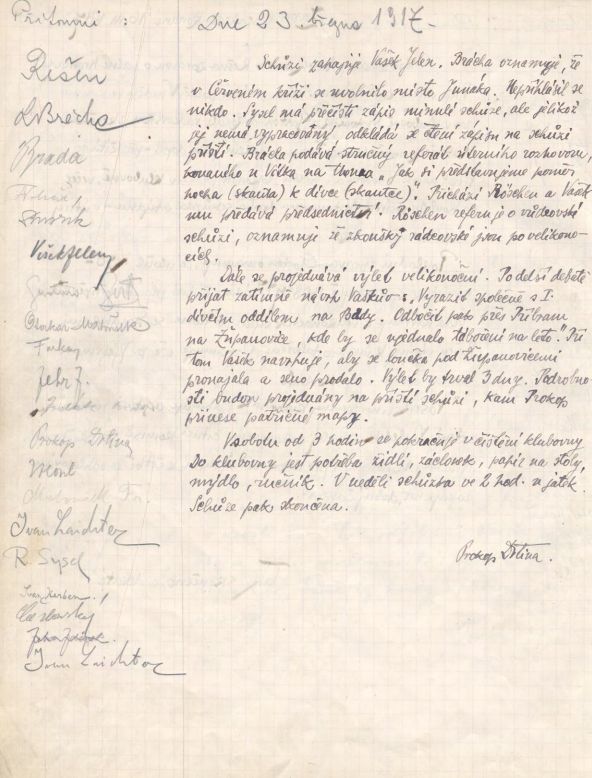 Přítomni :
Dne 23 března 1917.
Rišen
Brácha
Brada
Vašek Jelen
Prokop Drtina
Mont.
Ivan Laichter
R. Sysel
Ivan Laichter
Schůzi zahajuje Vašek Jelen. Brácha oznamuje, že
v Červeném kříži se uvolnilo místo Junáka. Nepřihlásil se
nikdo. Sysel má přečísti zápis minulé schůze, ale jelikož
jej nemá vypracovaný odkládá se čtení zápisu na schůzi
příští. Brácha podává stručný referát úterního rozhovoru,
konaného u Vlka na thema „Jak si představujeme poměr
hocha (skauta) k dívce (skautce)". Přichází Röschen a Vašek
mu předává předsednictví. Röschen referuje o vůdcovské
schůzi, oznamuje že zkoušky rádcovské jsou po velikono-
cích.
Dále se projednává výlet velikonoční. Po delší debatě
přijat zatímně návrh Vaškův: „Vyraziti společně s I.
dívčím oddílem na Brdy. Odbočit pak přes Příbram
na Županovice, kde by se ujednalo táboření na léto." Při
tom Vašek navrhuje, aby se loučka pod Županovicemi
pronajala a seno prodalo. Výlet by trval 3 dny. Podrobno-
sti budou projednány na příští schůzi, kam Prokop
přinese patřičné mapy.
V sobotu od 3 hodin se pokračuje v čištění klubovny.
Do klubovny jest potřeba židlí, záclonek, papír na stoly,
mýdlo, ručník. V neděli schůzka ve 2 hod. u jatek.
Schůze pak skončena.
Prokop Drtina.